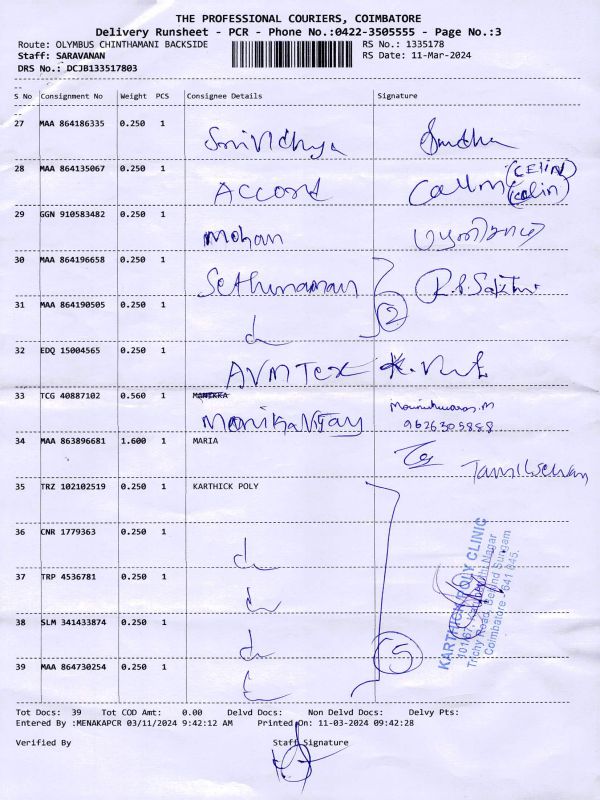 THE PROFESSIONAL COURIERS, COIMBATORE
Delivery Runsheet - PCR - Phone No.:0422-3505555 - Page No.:3
Route: OLYMBUS CHINTHAMANI BACKSIDE RS No.: 1335178
Staff: SARAVANAN RS Date: 11-Mar-2024
DRS No.: DCJB133517803
S No Consignment No Weight PCS Consignee Details Signature
27 MAA 864186335 0.250 1 Srividhya Sudha
28 MAA 864135067 0.250 1 Accord
29 GGN 910583482 0.250 1 Mohan
30 MAA 864196658 0.250 1 Sethuraman
31 MAA 864190505 0.250 1 2
32 EDQ 15004565 0.250 1 AVM Tex
33 TCG 40887102 0.560 1 MANIKKA
Monika Vijay
9626305888
34 MAA 863896681 1.600 1 MARIA Tamilselvan
35 TRZ 102102519 0.250 1 KARTHICK POLY
36 CNR 1779363 0.250 1
37 TRP 4536781 0.250 1
38 SLM 341433874 0.250 1
39 MAA 864730254 0.250 1
5
KARTHICK POLY CLINIC
Trichy Road, Behind Sungam
Coimbatore - 641 045.
Tot Docs: 39 Tot COD Amt: 0.00 Delvd Docs: Non Delvd Docs: Delvy Pts:
Entered By :MENAKAPCR 03/11/2024 9:42:12 AM Printed On: 11-03-2024 09:42:28
Verified By Staff Signature